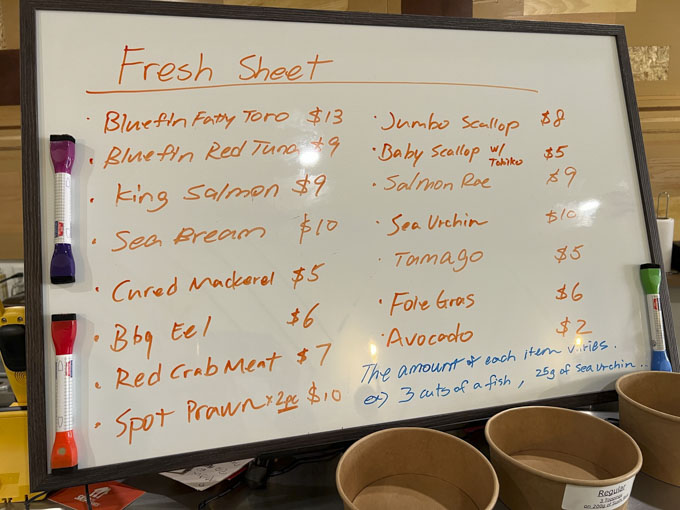 Fresh Sheet
· Bluefin Fatty Toro $13
· Bluefin Red Tuna $9
· King Salmon $9
· Sea Bream $10
· Cured Mackerel $5
· Bbq Eel $6
· Red Crab Meat $7
· Spot Prawn x2pc $10
· Jumbo Scallop $8
· Baby Scallop w/ Tobiko $5
· Salmon Roe $9
· Sea Urchin $10
· Tamago $5
· Foie Gras $6
· Avocado $2
The amount of each item varies.
ex) 3 cuts of a fish, 25g of sea urchin..
Regular